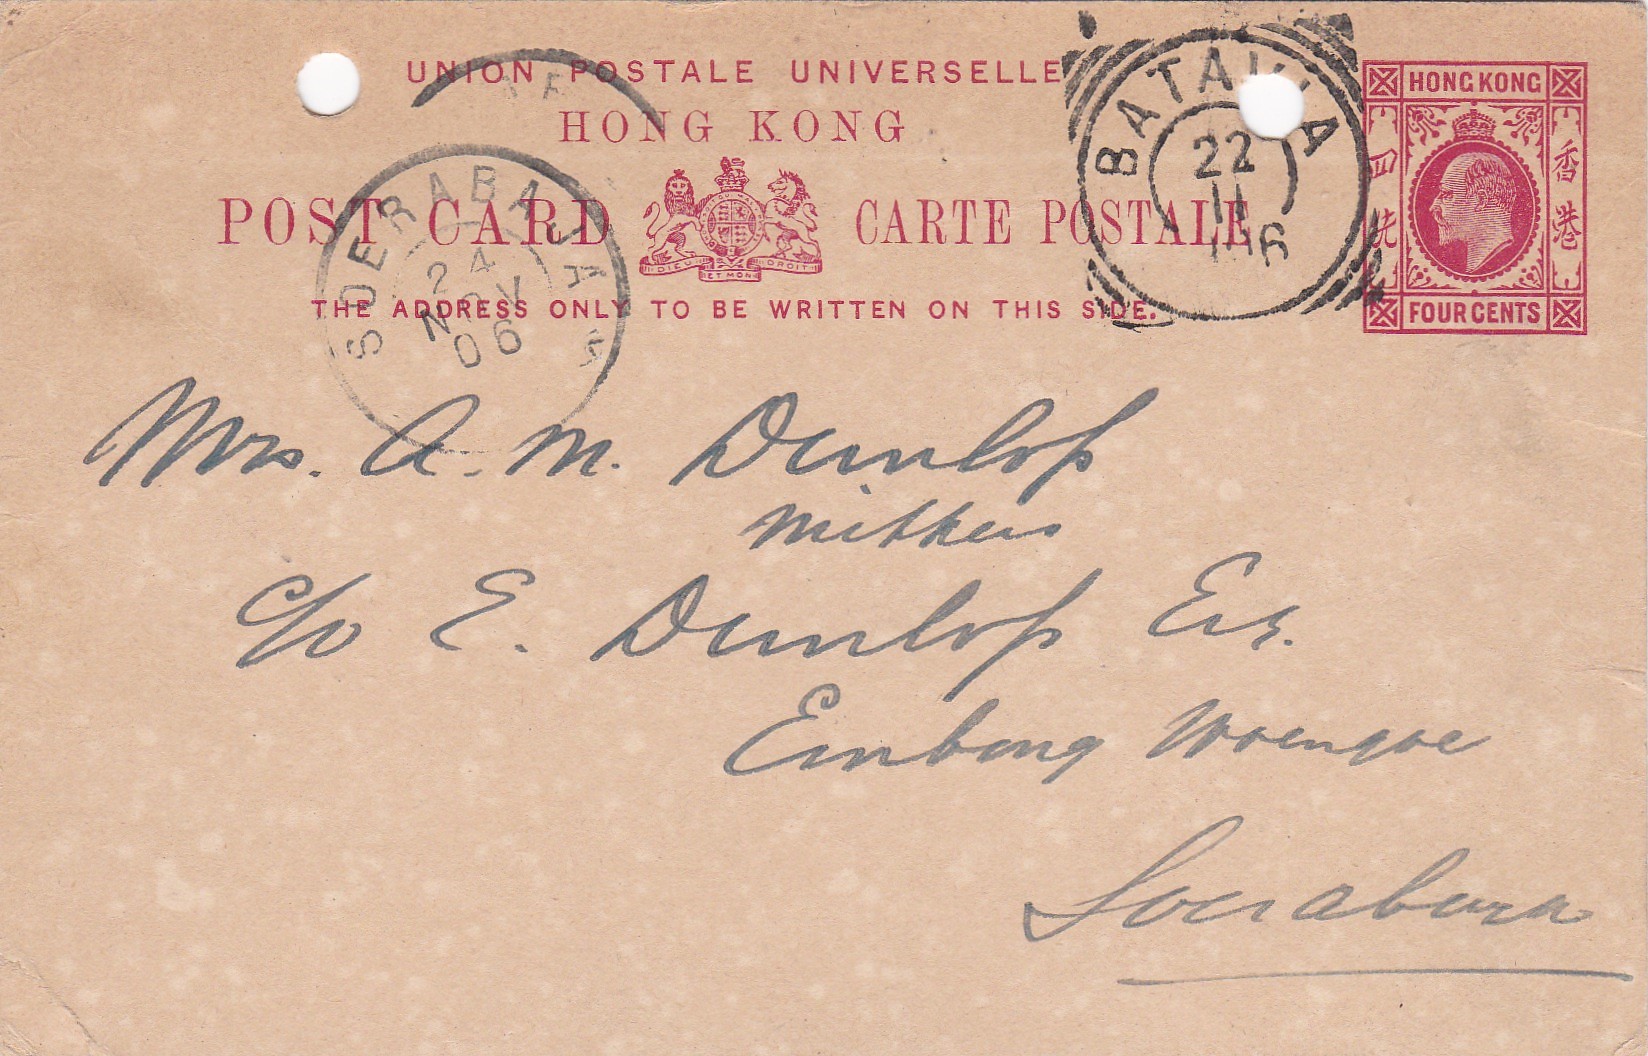 UNION POSTALE UNIVERSELLE
HONG KONG
POST CARD CARTE POSTALE
DIEU ET MON DROIT
THE ADDRESS ONLY TO BE WRITTEN ON THIS SIDE.
BATAVIA
22
11
06
HONG KONG
四
香
港
FOUR CENTS
SOERABAJA
24
NOV
06
Mrs. A. M. Dunlop
c/o E. Dunlop Esq.
Embong Woengoe
Soerabaya